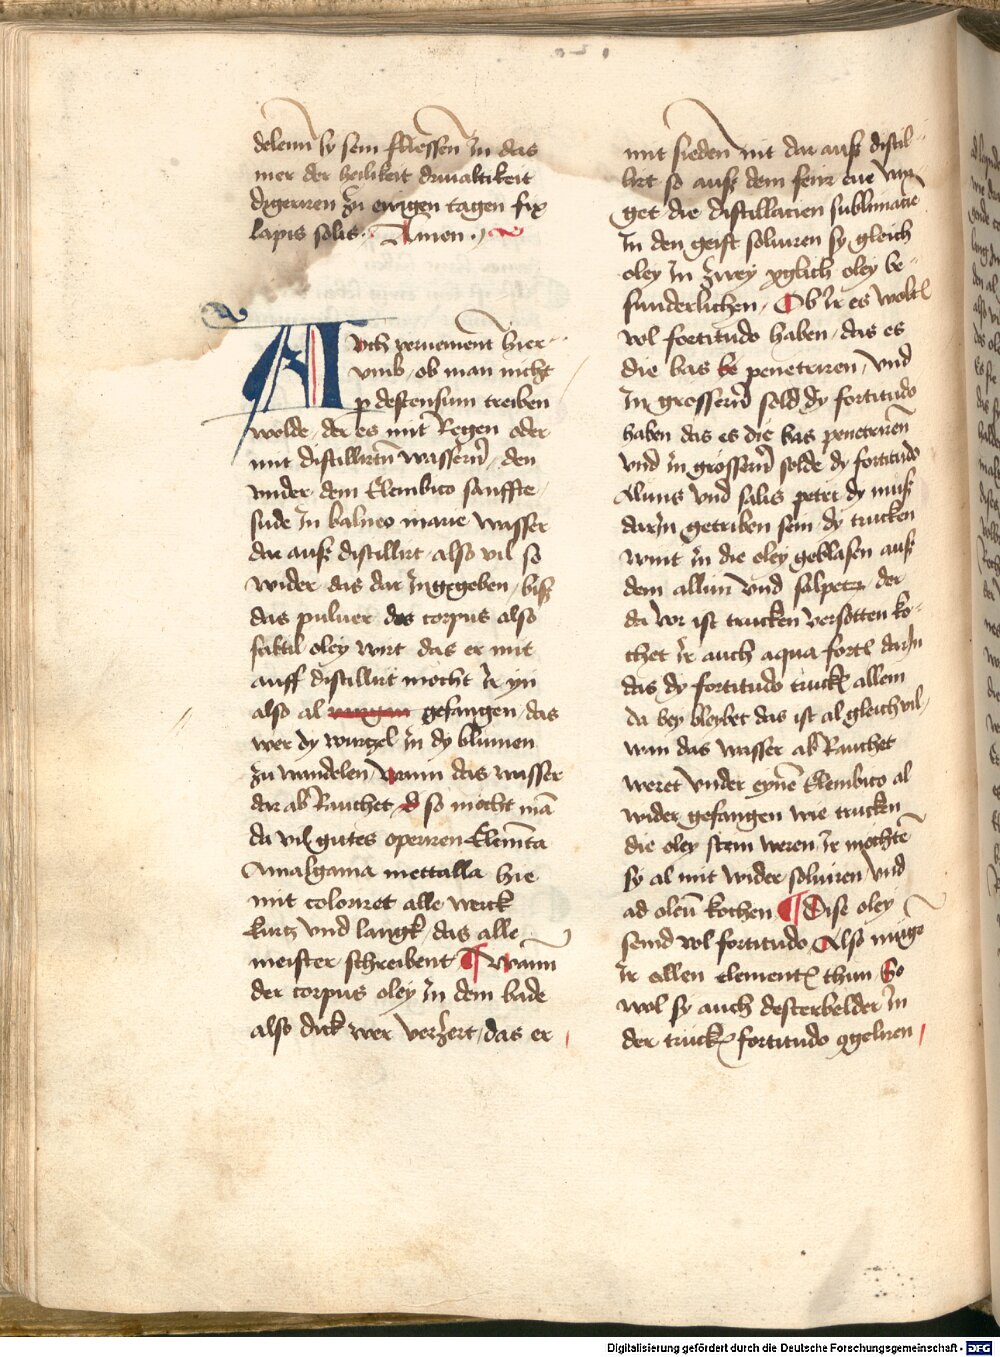 delenn sy sein fliessen in das
mer der heilikeit drivaltikeit
digeriren zu ewigen tagen fix
lapis solis. Amen.
Auch vernement hier
vmb, ob man nicht
p descensum treiben
wolde, der es mit Regen oder
mit distillirtn wassern, den
vnder dem Elembico sanffte
sude in balneo marie wasser
dar auß distillirt, also vil so
wider das dar ingegeben, biß
das puluer des corpus also
subtil oley wirt das er mit
auff distillirt mocht Ir yn
also al gefangen, das
wer dy wurczel in dy blumen
zu wandelen, wann das wasser
dar ab Rauchet so mocht mā
da vil gutes operiren Elemēta
Amalgama mettalla hie
mit coloriret alle werck
kurcz vnd langk, das alle
meister schreibent ¶ Wann
der corpus oley in dem bade
also dick wer verzert, das er
mit sieden nit dar auß distil
lirt so auß dem feur
get die distillacien sublimacie
in den geist soluiren sy gleich
oley in zwey yglich oley be
sunderlichen, Ob Ir es wolt
vol fortitudo haben, das es
die bas penetriren, vnd
in grossern sold dy fortitudo
haben das es die bas penetriren
vnd in grossern solde dy fortitudo
Aluns vnd salis petri dy muß
darin getriben sein dy trucken
wint in die oley geblasen auß
dem allun vnd salpeter, der
da vor ist trucken versotten ko
chet Ir auch aqua fort darin
das dy fortitudo truck allein
da bey bleybet das ist al gleich vil,
wan das wasser ab Rauchet
weret vnder eynē Elembico al
wider gefangen wie trucken
die oley stein weren Ir mochtē
sy al mit wider soluiren vnd
ad oleū kochen ¶ Dise oley
seind vol fortitudo Also muge
Ir allen element thun So
wol sy auch desterbelder in
der truck fortitudo ggeliren
Digitalisierung gefördert durch die Deutsche Forschungsgemeinschaft - DFG